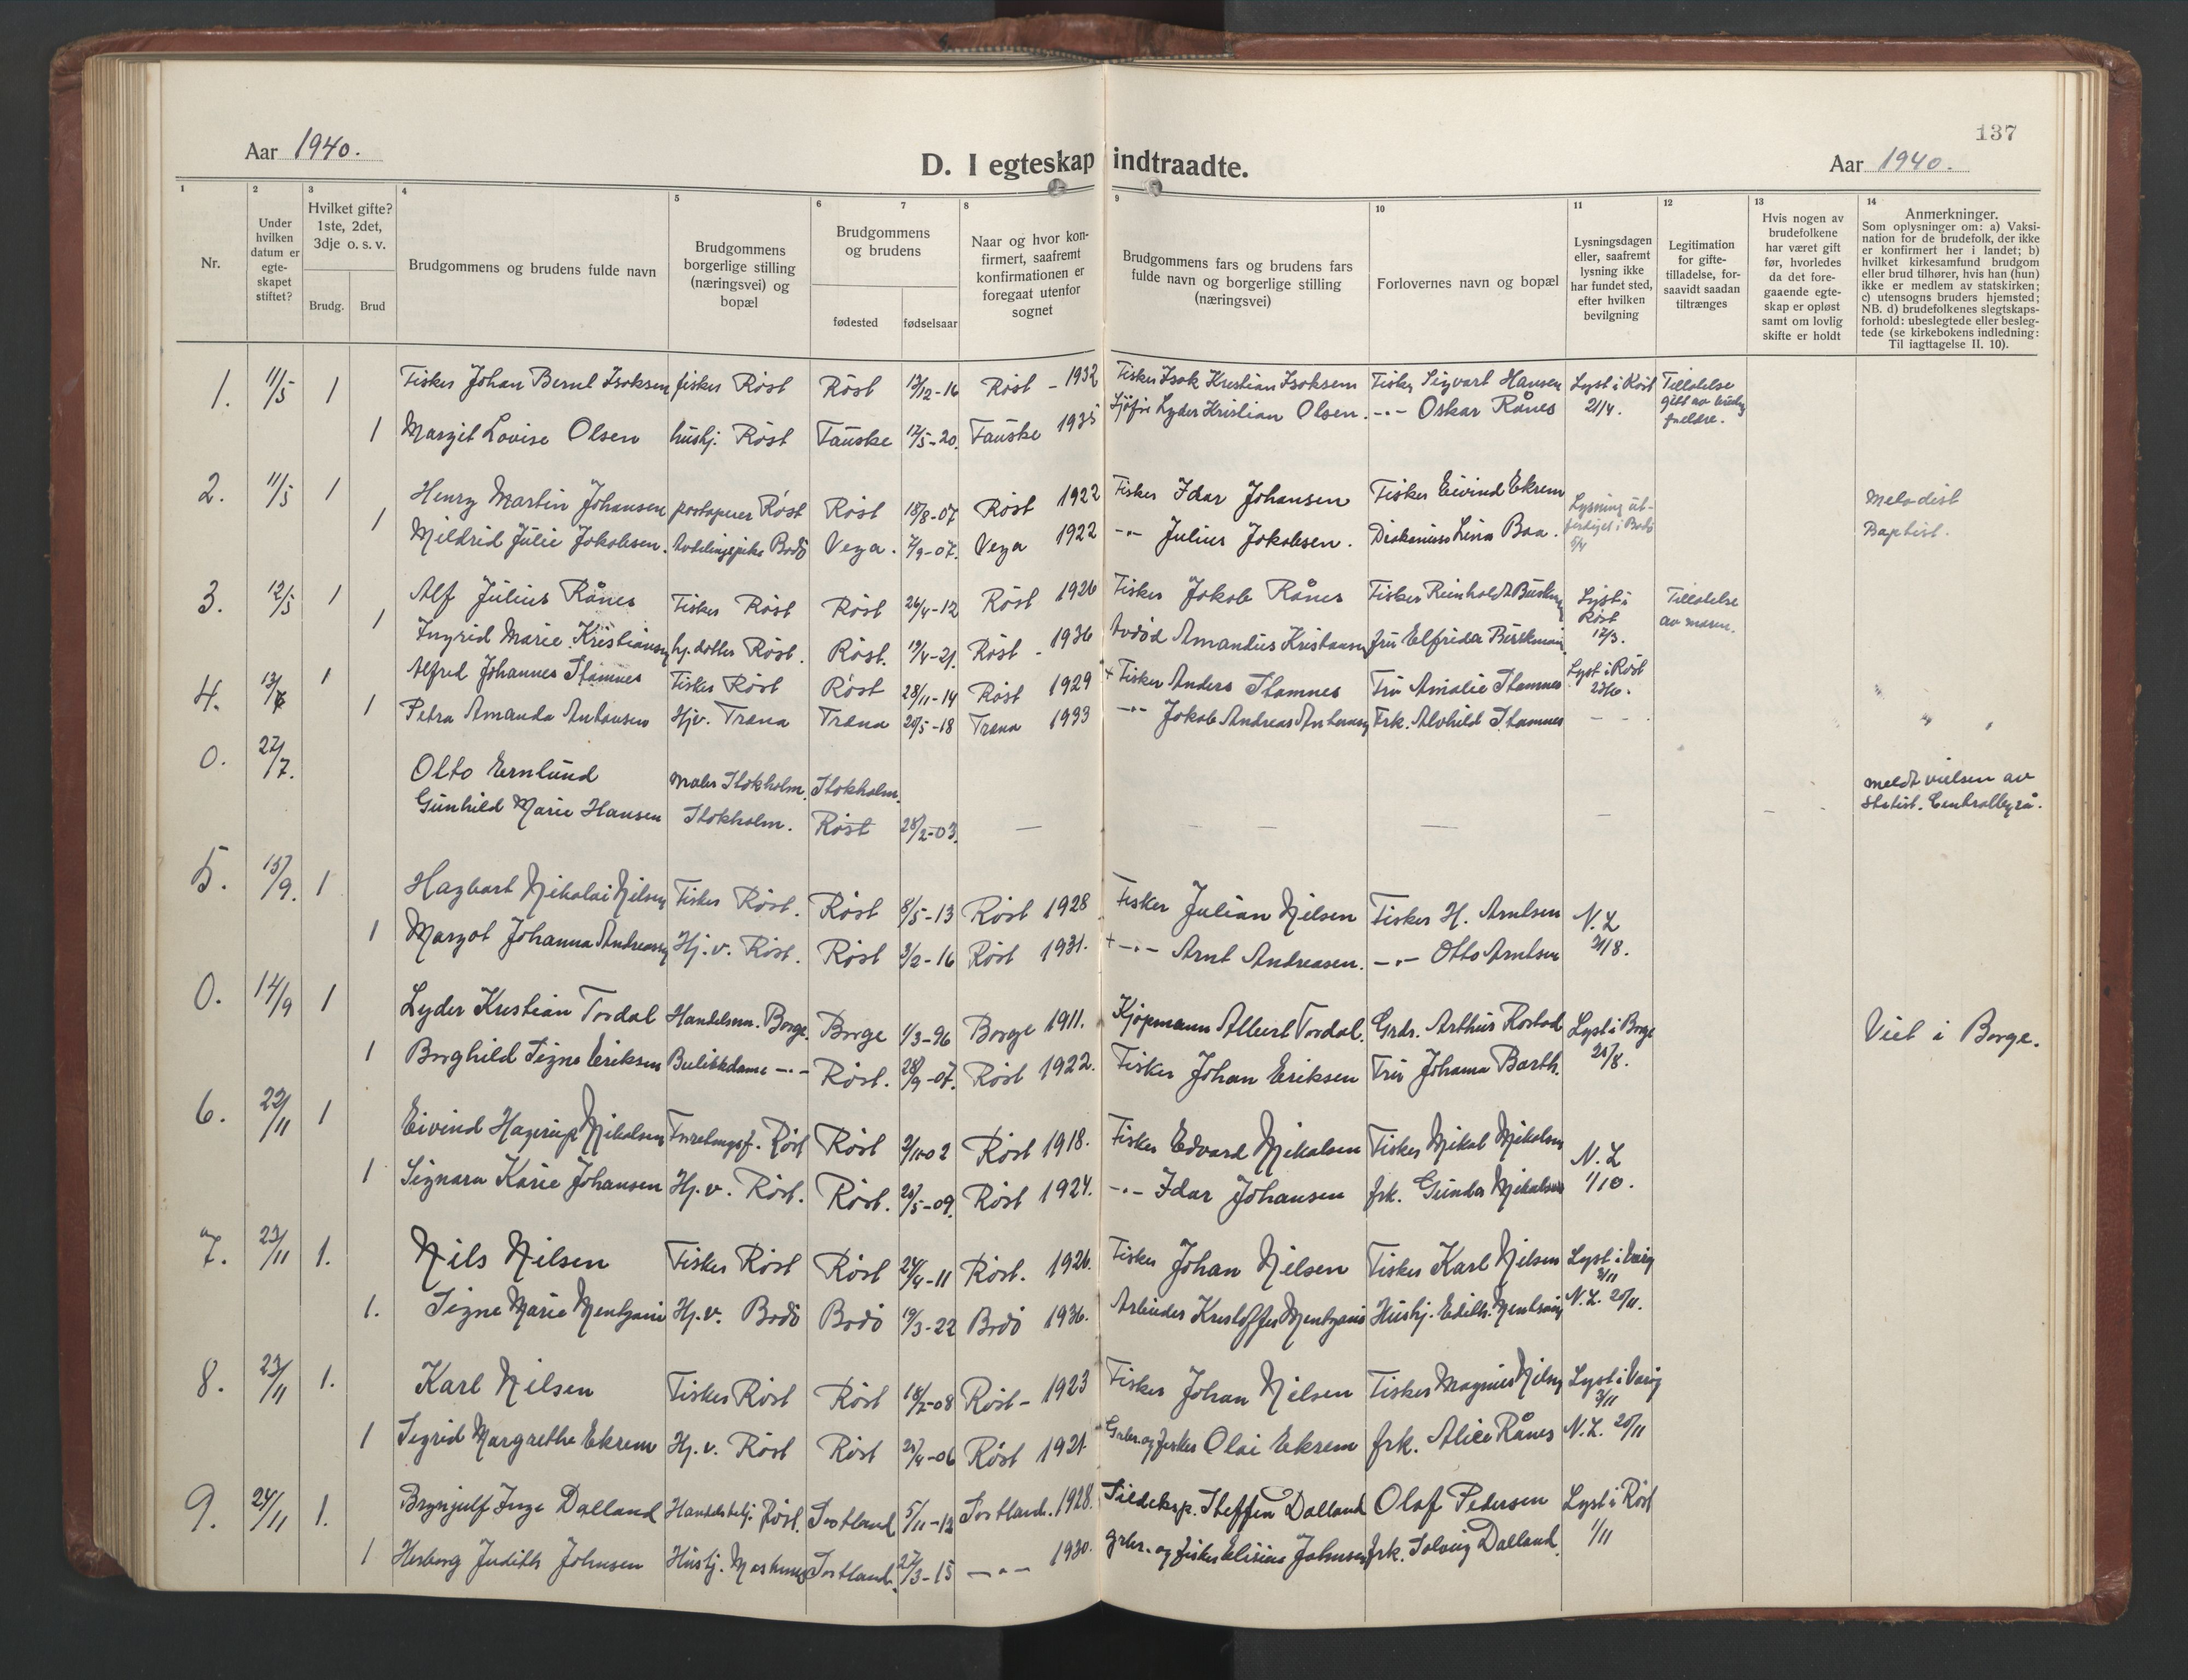 137
Aar 1940.
D. I egteskap indtraadte.
Aar 1940.
1 2 3 4 5 6 7 8 9 10 11 12 13 14
Nr.
Under hvilken datum er egte-skapet stiftet?
Hvilket gifte? 1ste, 2det, 3dje o. s. v.
Brudg. Brud
Brudgommens og brudens fulde navn
Brudgommens borgerlige stilling (næringsvei) og bopæl
Brudgommens og brudens
fødested fødselsaar
Naar og hvor kon-firmert, saafremt konfirmationen er foregaat utenfor sognet
Brudgommens fars og brudens fars fulde navn og borgerlige stilling (næringsvei)
Forlovernes navn og bopæl
Lysningsdagen eller, saafremt lysning ikke har fundet sted, efter hvilken bevilgning
Legitimation for gifte-tilladelse, for-saavidt saadan tiltrænges
Hvis nogen av brudefolkene har været gift før, hvorledes da det fore-gaaende egte-skap er opløst samt om lovlig skifte er holdt
Anmerkninger.
Som oplysninger om: a) Vaksi-nation for de brudefolk, der ikke er konfirmert her i landet; b) hvilket kirkesamfund brudgom eller brud tilhører, hvis han (hun) ikke er medlem av statskirken; c) utensogns bruders hjemsted; NB. d) brudefolkenes slegtskaps-forhold: ubeslegtede eller besleg-tede (se kirkebokens indledning: Til iagttagelse II. 10).
1. 11/5 1 Fisker Johan Bernt Isaksen fisker Röst Röst 13/12-16 Röst - 1932 Fisker Isak Kristian Isaksen Fisker Sigvart Hansen Lyst i Röst 21/4. Tillatelse gitt av foreldre.
1 Margit Lovise Olsen hushj. Röst Fauske 12/5-20. Fauske 1935 Lyder Kristian Olsen. -"- Oskar Rånes
2. 11/5 1 Henry Martin Johansen Röst Röst 18/8-07 Röst 1922 Fisker Idar Johansen Fisker Eivind Ekrem Lysning ut-ferdiget i Bodö 5/4 Metodist
1 Mildrid Julie Jakobsen. Avdelingspike Bodö Vega. 7/9-07. Vega 1922 -"- Julius Jakobsen. Diakonisse Lina Baa. Baptist.
3. 12/5 1 Alf Julius Rånes Fisker Röst Röst 26/4-12 Röst 1926 Fisker Jakob Rånes Fisker Reinholdt Lyst i Röst 12/3. Tillatelse av moren.
1 Ingrid Marie Kristiansen hj. datter Röst. Röst. 19/4-21. Röst - 1936 Avdöd Amandus Kristiansen fru Elfrida
4. 13/7 1 Alfred Johannes Stamnes Fisker Röst Röst 28/11-14 Röst 1929 + Fisker Anders Stamnes Fru Amalie Stamnes Lyst i Röst 23/6.
1 Petra Amanda Antonsen Hjv. Træna Træna 20/5-18 Træna 1933 -"- Jakob Andreas Antonsen Frk. Alvhild Stamnes - -
0. 27/7. Otto Ernlund Maler Stokholm. Stokholm. meldt vielsen av
Gunhild Marie Hansen Stokholm. Röst 28/2-03. - - - - - Statist. Centralbyrå.
5. 15/9. 1 Hagbart Nikolai Nilsen Fisker Röst. Röst 8/5-13 Röst 1928 Fisker Julian Nilsen Fisker H. Arntsen N. L 31/8.
1 Margot Johanna Andreasen Hj. v. Röst. Röst 3/2-16 Röst 1931. + -"- Arnt Andreasen. -"- Otto Arntsen
0. 14/9 1 Lyder Kristian Tordal Handelsm. Borge. Borge 1/3-96 Borge 1911. Kjöpmann Albert Tordal. Grdr. Arthur Rostad Lyst i Borge 25/8. Viet i Borge.
1 Borghild Signe Eriksen Butikkdame -"- Röst. 28/9-07. Röst 1922. Fisker Johan Eriksen Fru Johanna Barth.
6. 22/11 1 Eivind Hagerup Nikolaisen Röst Röst 2/10-02 Röst 1918. Fisker Edvard Mikalsen Fisker Mikal Mikalsen N. L 1/10.
1 Signara Karie Johansen Hj. v. Röst. Röst. 20/5-09. Röst 1924. -"- Idar Johansen frk. Gunda Mikalsen
7. 23/11 1. Nils Nilsen Fisker Röst Röst 24/4-11 Röst. 1926. Fisker Johan Nilsen Fisker Karl Nilsen Lyst i Væröy 3/11
1. Signe Marie Mentzoni Hj. v. Bodö Bodö 19/3-22 Bodö 1936. Arbeider Kristoffer Mentzoni Hushj. Edith Mentzoni N. L. 20/11.
8. 23/11 1. Karl Nilsen Fisker Röst Röst 18/2-08 Röst - 1923 Fisker Johan Nilsen Fisker Magnus Nilsen Lyst i Væröy 3/11
1 Sigrid Margrethe Ekrem Hj. v. Röst Röst 25/4-06 Röst 1921 Grbr. og fisker Olai Ekrem frk. Alice Rånes N. L. 20/11
9. 24/11 1. Brynjulf Inge Dalland Handelsbetj. Röst. Sortland 5/11-12 Sortland. 1928. Steffen Dalland Olaf Pedersen Lyst i Röst 1/11
1 Herborg Judith Johnsen Hushj. Sortland. 27/3-15 -"- 1930. grbr. og fisker Johnsen frk. Solveig Dalland.